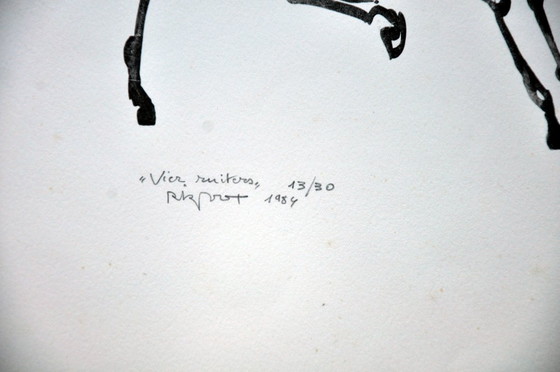 „Vier ruiters„ 13/30
1984